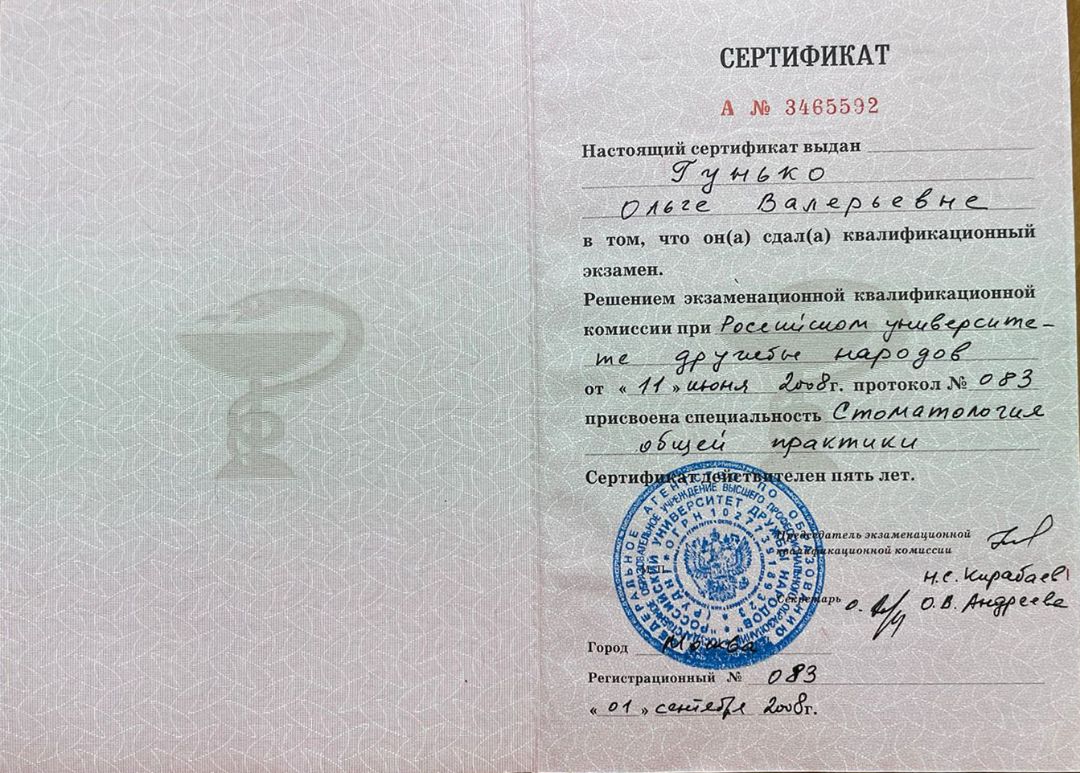 СЕРТИФИКАТ
А № 3465592
Настоящий сертификат выдан
Гунько
Ольге Валерьевне
в том, что он(а) сдал(а) квалификационный
экзамен.
Решением экзаменационной квалификационной
комиссии при Российском университе-
те дружбы народов
от « 11 » июня 2008г. протокол № 083
присвоена специальность Стоматология
общей практики
Сертификат действителен пять лет.
ФЕДЕРАЛЬНОЕ АГЕНТСТВО ПО ОБРАЗОВАНИЮ
ОБРАЗОВАТЕЛЬНОЕ УЧРЕЖДЕНИЕ ВЫСШЕГО ПРОФЕССИОНАЛЬНОГО ОБРАЗОВАНИЯ
"РОССИЙСКИЙ УНИВЕРСИТЕТ ДРУЖБЫ НАРОДОВ"
(РУДН) * ОГРН 1027739189323
Председатель экзаменационной
квалификационной комиссии
Н.С. Кирабаев
Секретарь О.В. Андреева
Город Москва
Регистрационный № 083
« 01 » сентября 2008г.